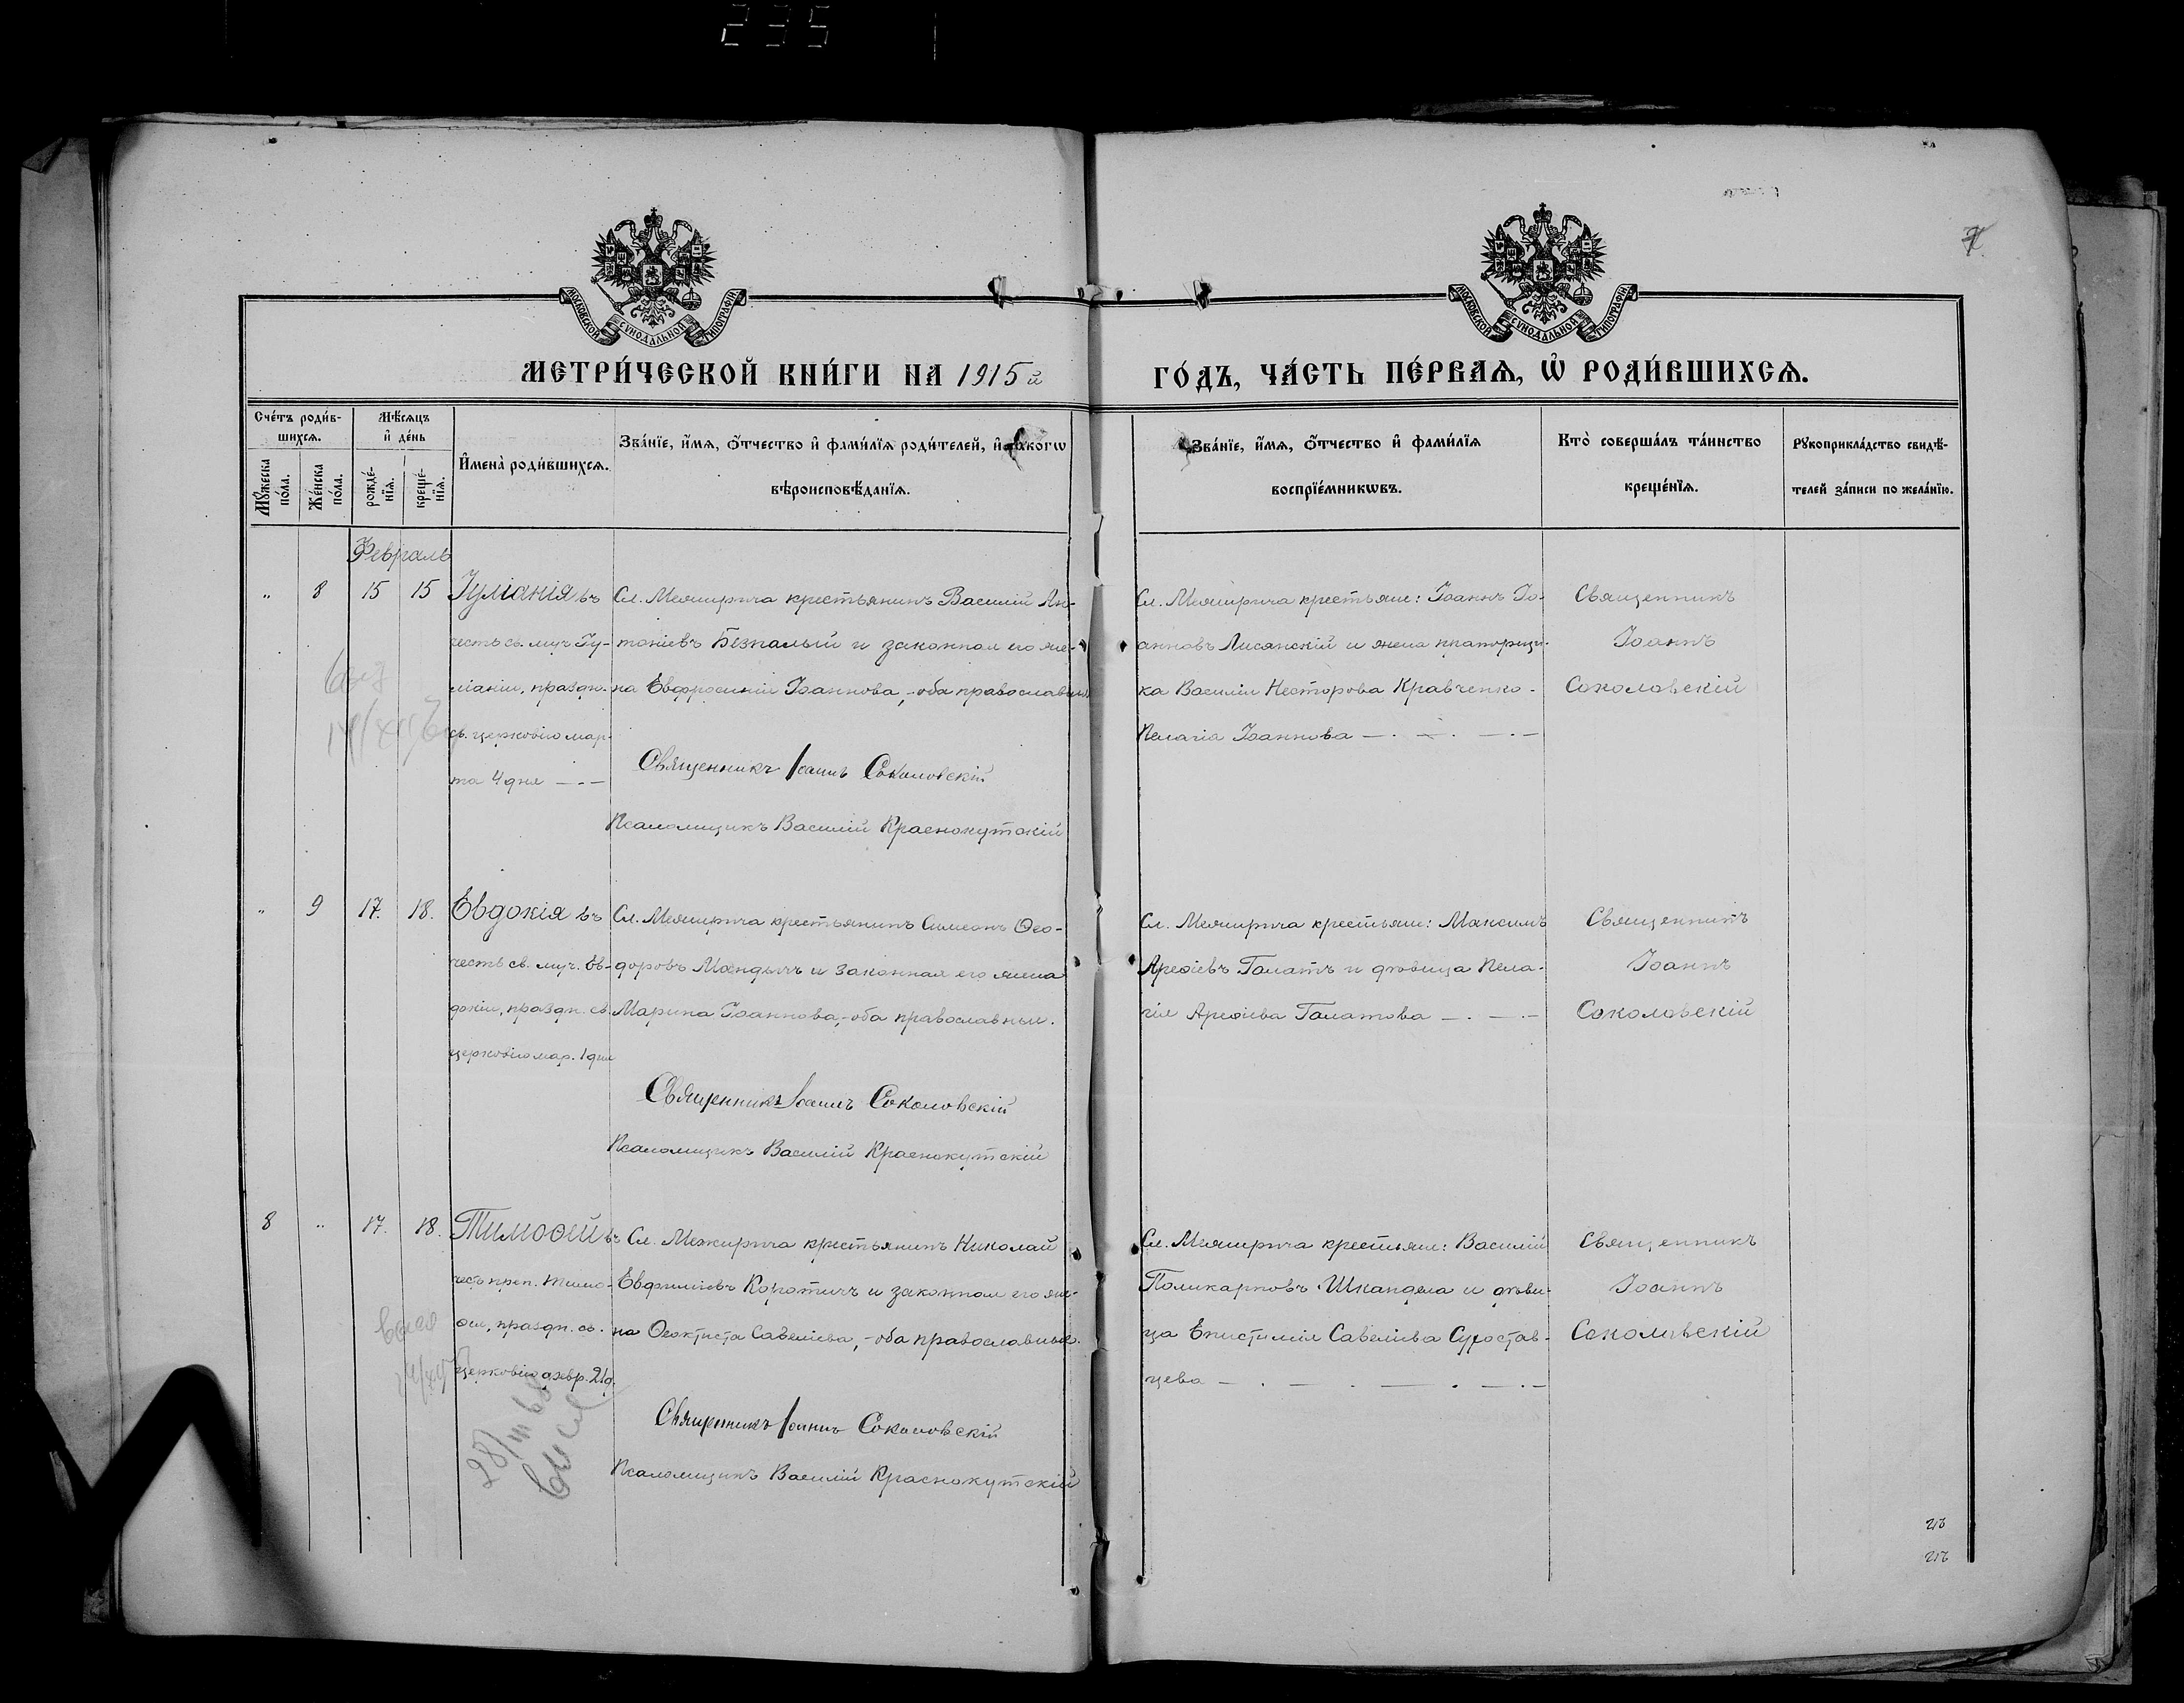 235
МОСКОВСКОЙ СѴНОДАЛЬНОЙ ТИПОГРАФІИ
МОСКОВСКОЙ СѴНОДАЛЬНОЙ ТИПОГРАФІИ
МЕТРИ́ЧЕСКОЙ КНИ́ГИ НА 1915й
ГО́ДЪ, ЧА́СТЬ ПЕ́РВАѦ, Ѡ҆ РОДИ́ВШИХСѦ.
Сче́тъ роди́в-
шихсѧ.
Мѣ́сѧцъ
и҆ де́нь
Мꙋ́жеска
по́ла.
Же́нска
по́ла.
рожде́-
нїѧ.
креще́-
нїѧ.
И҆мена̀ роди́вшихсѧ.
Зва́нїе, и҆́мѧ, ѻ҆́тчество и҆ фами́лїѧ роди́телей, и҆ какогѡ
вѣроисповѣ́данїѧ.
Зва́нїе, и҆́мѧ, ѻ҆́тчество и҆ фами́лїѧ
воспрїе́мникѡвъ.
Кто̀ соверша́лъ та́инство
креще́нїѧ.
Рꙋкоприкла́дство свидѣ́-
телей за́писи по жела́нїю.
Февраль
„ 8 15 15 Іуліанія въ
честь св. муч. Іу-
ліаніи, праздн.
св. церковію мар-
та 4 дня — - —
Сл. Межирича крестьянинъ Василій Ан-
тоніевъ Безпалый и законная его же-
на Евфросинія Іоаннова, - оба православные.
Священникъ Іоаннъ Соколовскій
Псаломщикъ Василій Краснокутскій
Сл. Межирича крестьяне: Іоаннъ Іо-
анновъ Лисянскій и жена прапорщи-
ка Василія Несторова Кравченко -
Пелагія Іоаннова — . — . — . —
Священникъ
Іоаннъ
Соколовскій
„ 9 17. 18. Евдокія въ
честь св. муч. Ев-
докіи, праздн. св.
церковію мар. 1 дня
Сл. Межирича крестьянинъ Симеонъ Ѳео-
доровъ Мандычъ и законная его жена
Марина Іоаннова, - оба православные.
Священникъ Іоаннъ Соколовскій
Псаломщикъ Василій Краснокутскій
Сл. Межирича крестьяне: Максимъ
Ареѳіевъ Галатъ и дѣвица Пела-
гія Ареѳіева Галатова — . — . —
Священникъ
Іоаннъ
Соколовскій
8 „ 17. 18. Тимоѳей въ
честь преп. Тимо-
ѳея, праздн. св.
церковію февр. 21 д.
Сл. Межирича крестьянинъ Николай
Евфиміевъ Коротичъ и законная его же-
на Ѳеоктиста Савеліева, - оба православные.
Священникъ Іоаннъ Соколовскій
Псаломщикъ Василій Краснокутскій
Сл. Межирича крестьяне: Василій
Поликарповъ Шкандела и дѣви-
ца Епистимія Савеліева Суростав-
цева — . — . — . — . —
Священникъ
Іоаннъ
Соколовскій